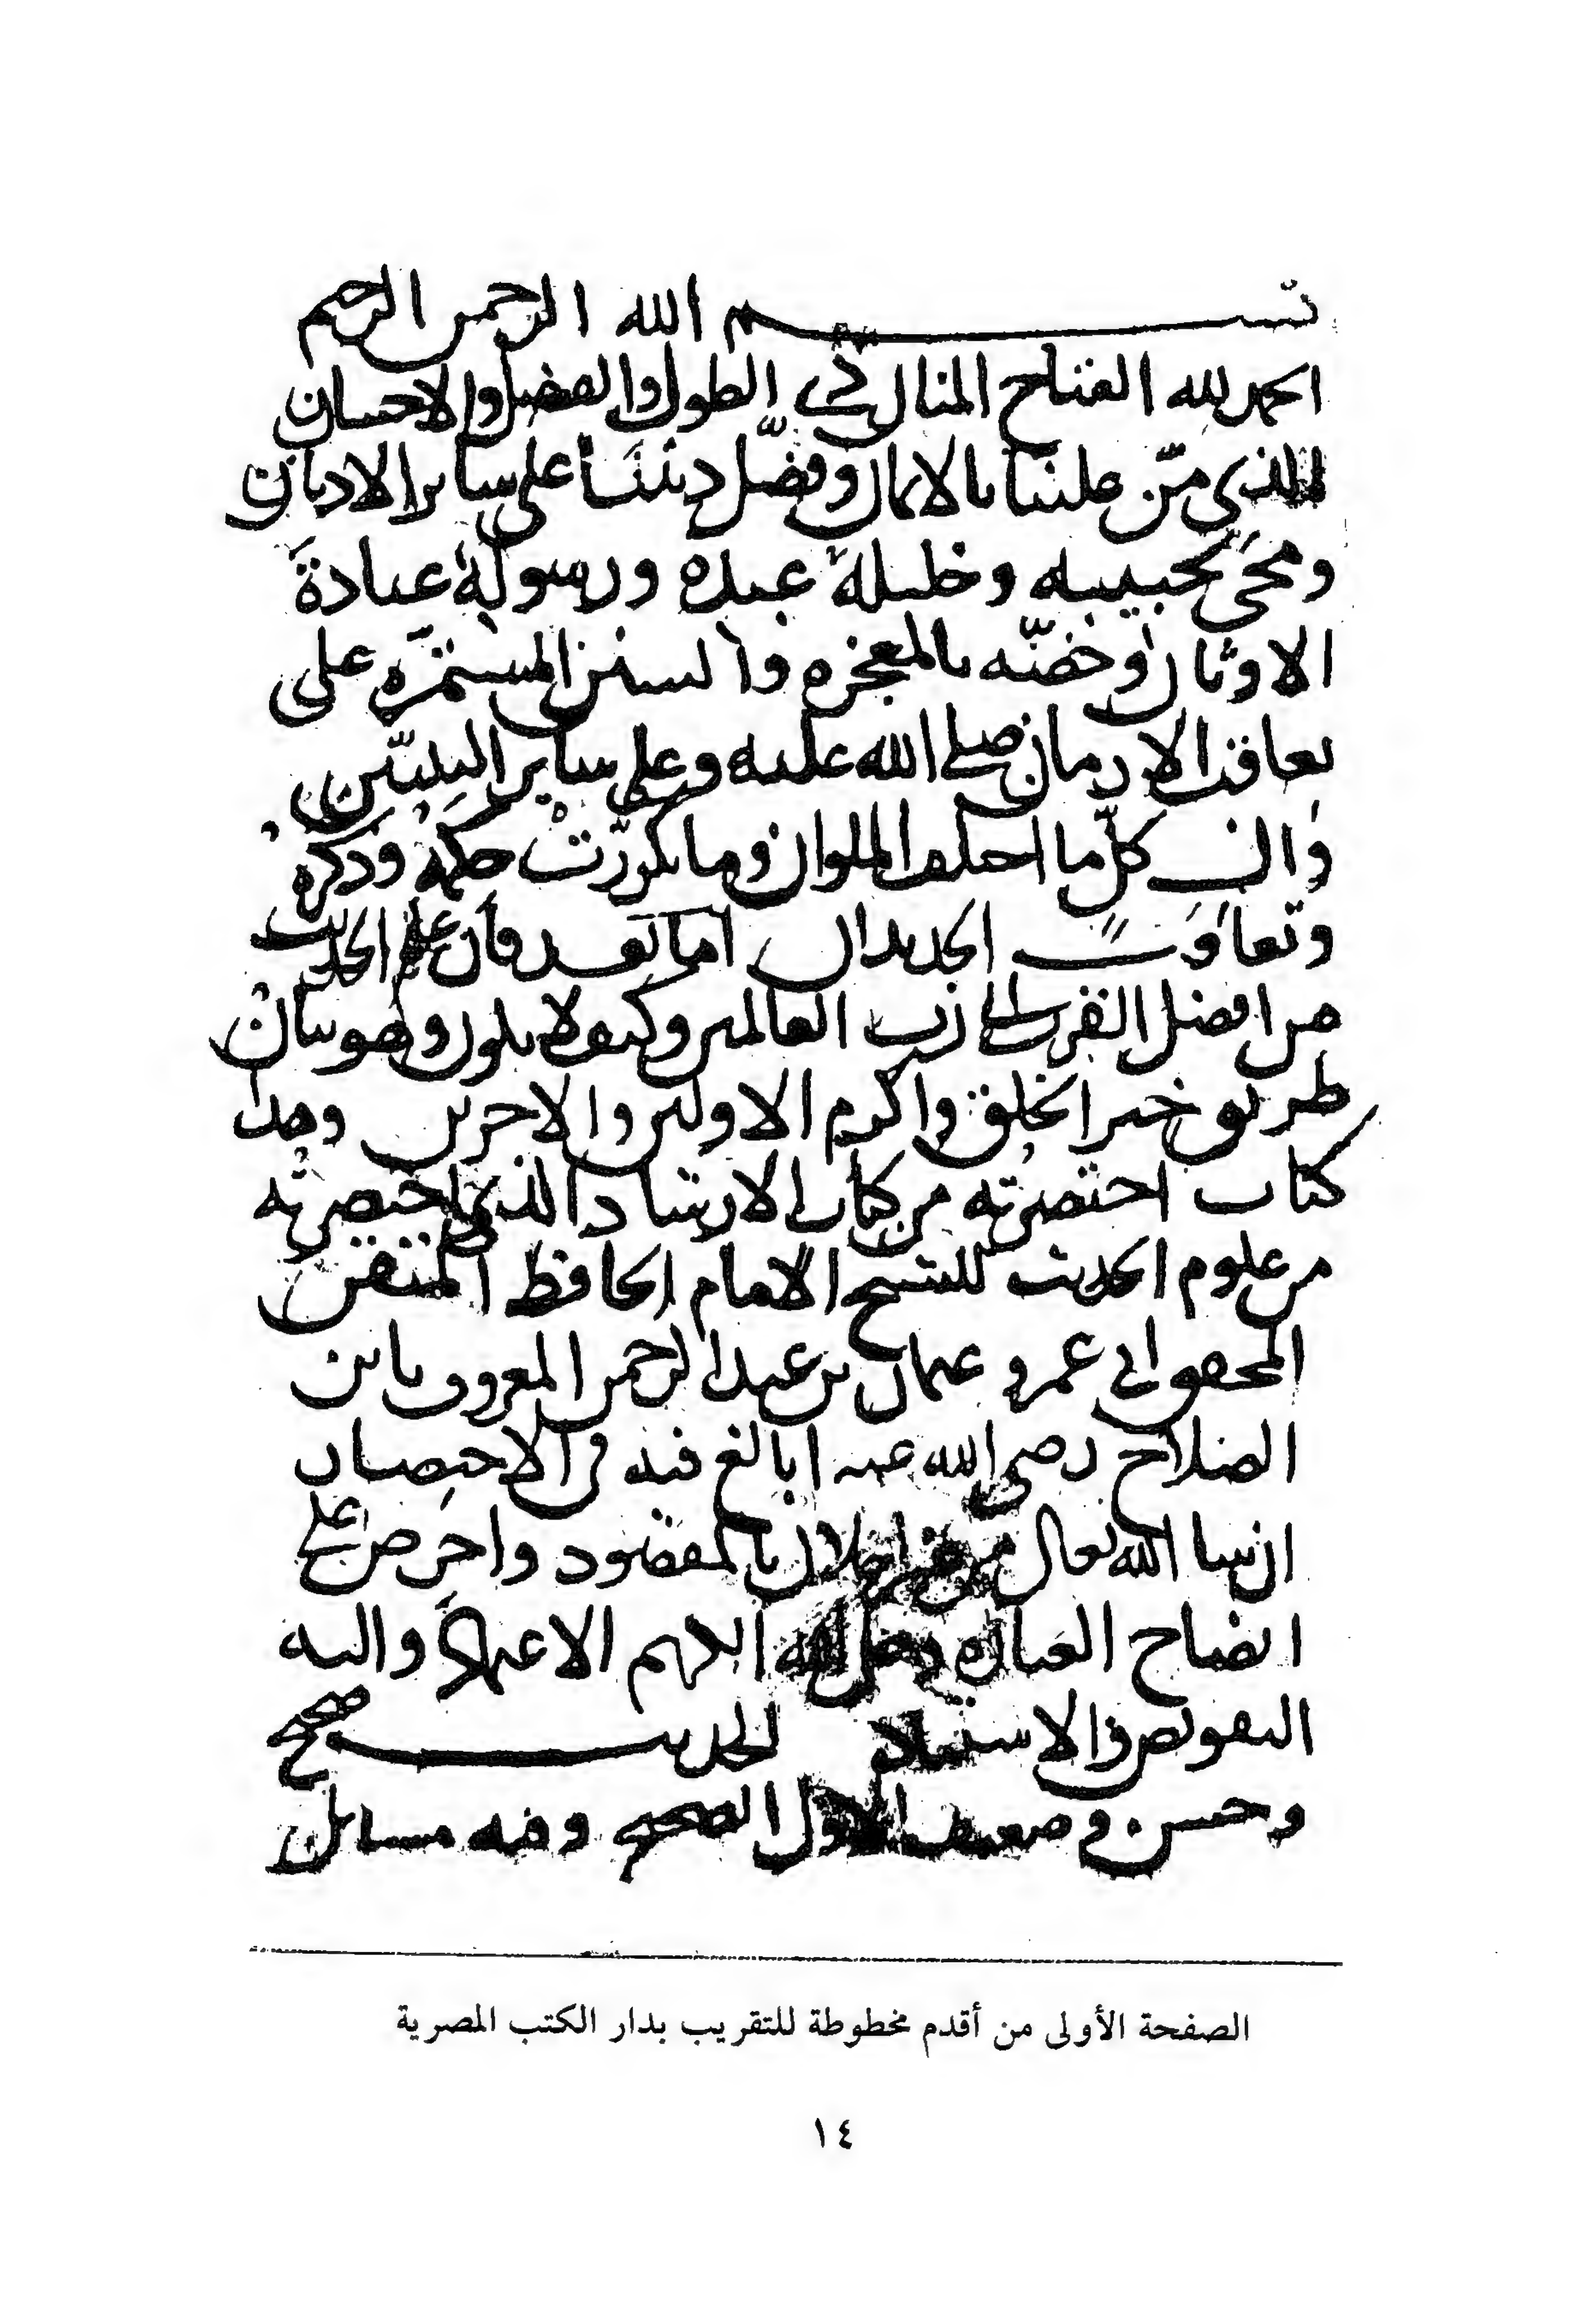 بسم الله الرحمن الرحيم
الحمد لله الفتاح المنان ذي الطول والفضل والاحسان
الذي منّ علينا بالايمان وفضّل ديننا على ساير الاديان
ومحى بحبيبه وخليله عبده ورسوله عبادة
الاوثان وخصّه بالمعجزه والسنن المستمرّه على
تعاقب الازمان صلى الله عليه وعلى ساير النبيّين
وال كلّ ما اختلف الملوان وما تكررّت حكمه وذكره
وتعاقب الجديدان اما بعد فان علم الحديث
من افضل القرب الى رب العالمين وكيف لا يكون وهو بيان
طريق خير الخلق واكرم الاولين والاخرين وهذا
كتاب اختصرته من كتاب الارشاد الذي اختصرته
من علوم الحديث للشيخ الامام الحافظ المتقن
المحقق ابي عمرو عثمان بن عبد الرحمن المعروف بابن
الصلاح رضي الله عنه ابالغ فيه في الاختصار
ان شا الله تعالى من غير اخلال بالمقصود واحرص على
ايضاح العباره وعلى الله الكريم الاعتماد واليه
التفويض والاستناد الحديث صحيح
وحسن وضعيف الاول الصحيح وفيه مسائل
الصفحة الأولى من أقدم مخطوطة للتقريب بدار الكتب المصرية
١٤